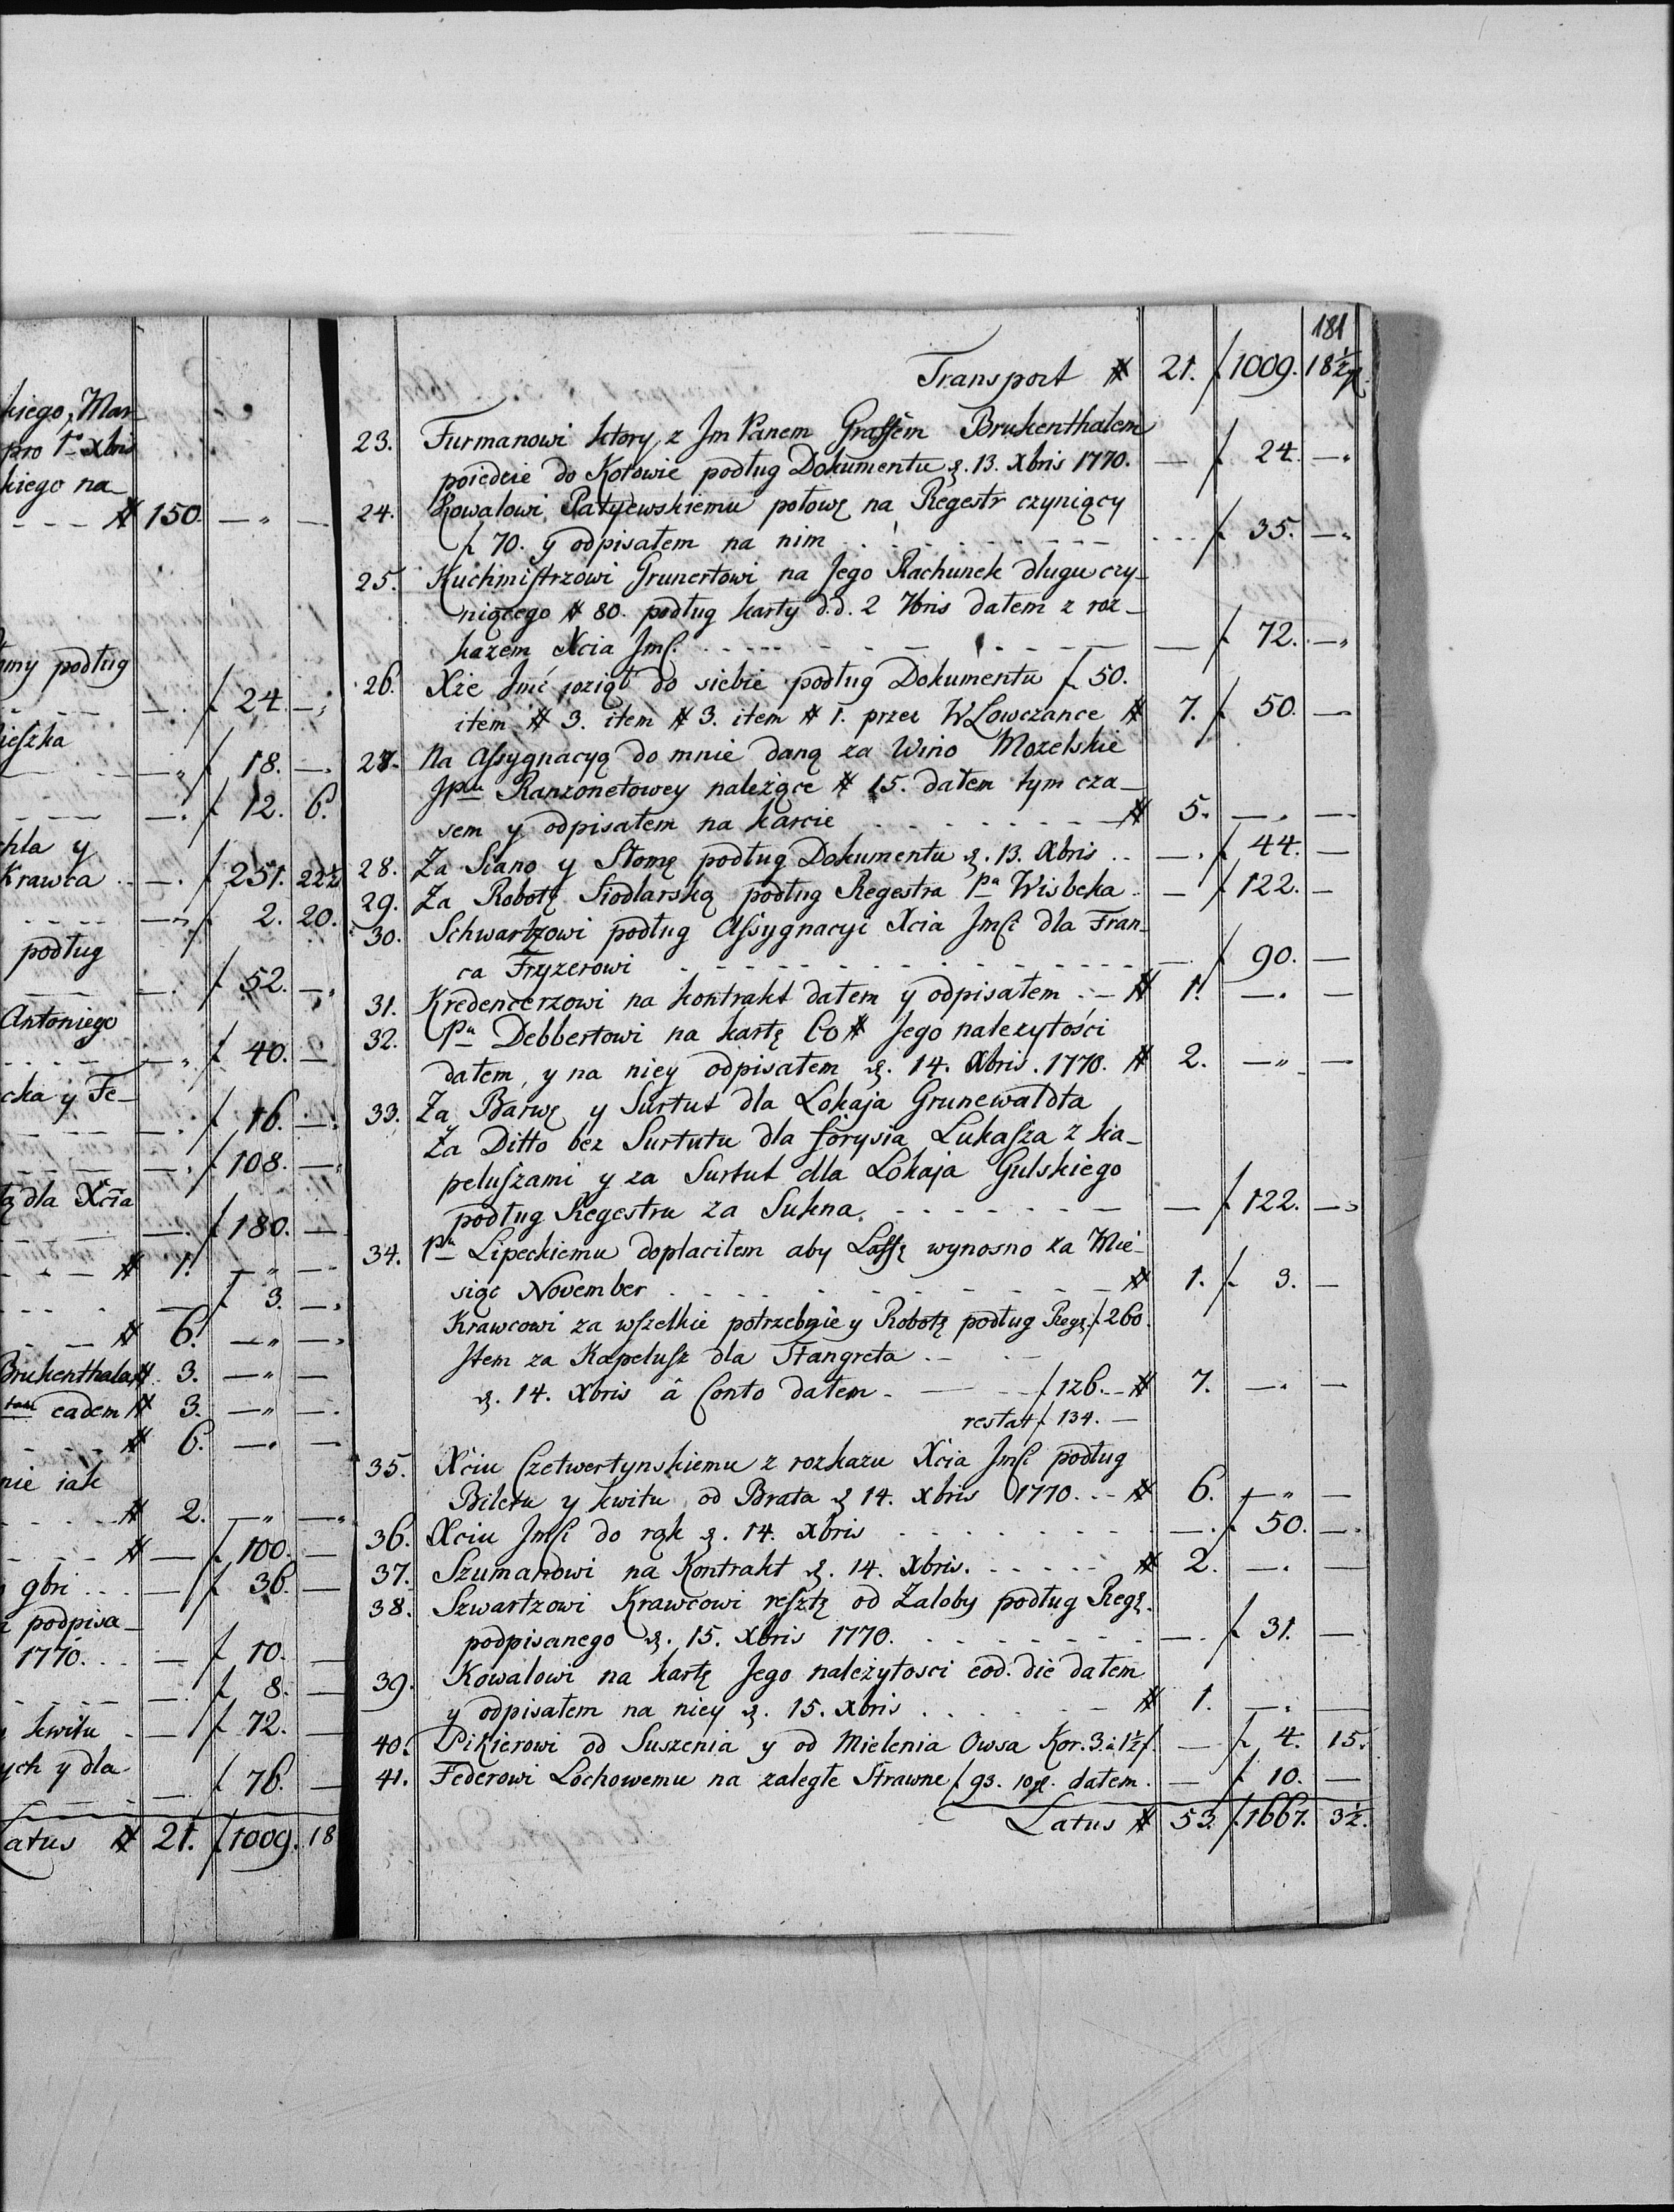 kiego, Mar
pro 1° xbris
kiego na
# 150. — " —
my podług
— f 24. —
ieszka
— " f 18. —
— f 12. 6.
chla y
Krawca — f 251. 22½
— f 2. 20.
podług
— f 52. —
Antoniego
— f 40. —
cka y Fe_
— f 16. —
— f 108. —
tą dla Xcia
— f 180. —
# 1. — " —
— f 3. —
# 6. — " —
Brukenthala # 3. — " —
eadem # 3. — " —
# 6. — —
nie iak
# 2. — " —
# — f 100. —
9bri — f 36. —
podpisa_
1770. — f 10. —
— f 8. —
kwitu — f 72. —
ych y dla
— f 76. —
Latus # 21. f 1009. 18
181
Transport # 21. f 1009. 18½
23. Furmanowi ktory z Jm Panem Graffem Brukenthalem
poiedzie do Kołowie podług Dokumentu d. 13. Xbris 1770. — f 24. —
24. Kowalowi Patyewskiemu połowę na Regestr czyniący
f 70. y odpisałem na nim f 35. —
25. Kuchmistrzowi Grunertowi na Jego Rachunek długu czy_
niącego # 80. podług karty d.d. 2 7bris dałem z roz_
kazem Xcia Jmſ. — f 72. —
26. Xże Jmć wziął do siebie podług Dokumentu f 50.
item # 3. item # 3. item # 1. przez W Lowczance # 7. f 50. —
27. Na Assygnacyą do mnie daną za Wino Mozelskie
Jpni Ranzonetowey należące # 15. dałem tym cza_
sem y odpisałem na karcie # 5. — —
28. Za Siano y Słomę podług Dokumentu d. 13. Xbris — f 44. —
29. Za Robotę Siodlarską podług Regestra Pa Wisbeka — f 122. —
30. Schwartzowi podług Assygnacyi Xcia Jmſci dla Fran_
ca Fryzerowi — f 90. —
31. Kredencerzowi na kontrakt dałem y odpisałem — # 1. — —
32. Pu Debbertowi na kartę Co # Jego nalezytości
dałem, y na niey odpisałem d. 14. Xbris. 1770. # 2. — " —
33. Za Barwę y Surtut dla Lokaja Grunewaldta
Za Ditto bez Surtutu dla forysia Lukasza z ka_
peluszami y za Surtut dla Lokaja Gulskiego
podług Regestru za Sukna — f 122. —
34. Pu Lipeckiemu dopłaciłem aby Laffę wynosno za Mie_
siąc November # 1. f 3. —
Krawcowi za wszelkie potrzebnie y Robotę podług Regę. f 260.
Jtem za Kapelusz dla Stangreta
d. 14. Xbris â Conto dałem f 126. — # 7. — —
restat f 134. —
35. Xciu Czetwertynskiemu z rozkazu Xcia Jmſci podług
Biletu y kwitu od Brata d 14. xbris 1770. # 6. — " —
36. Xciu Jmſci do rąk d. 14. xbris — f 50. —
37. Szumanowi na Kontrakt d. 14. xbris. # 2. — —
38. Szwartzowi Krawcowi resztę od Zaloby podług Regę.
podpisanego d. 15. Xbris 1770. — f 31. —
39. Kowalowi na kartę Jego należytosci eod. die dałem
y odpisałem na niey d. 15. xbris # 1. — —
40. Pikierowi od Suszenia y od Mielenia Owsa Kor. 3. à 1½ f. — f 4. 15.
41. Federowi Lochowemu na zaległe Strawne f 93. 10 gl. dałem. — f 10. —
Latus # 53. f. 1667. 3½.